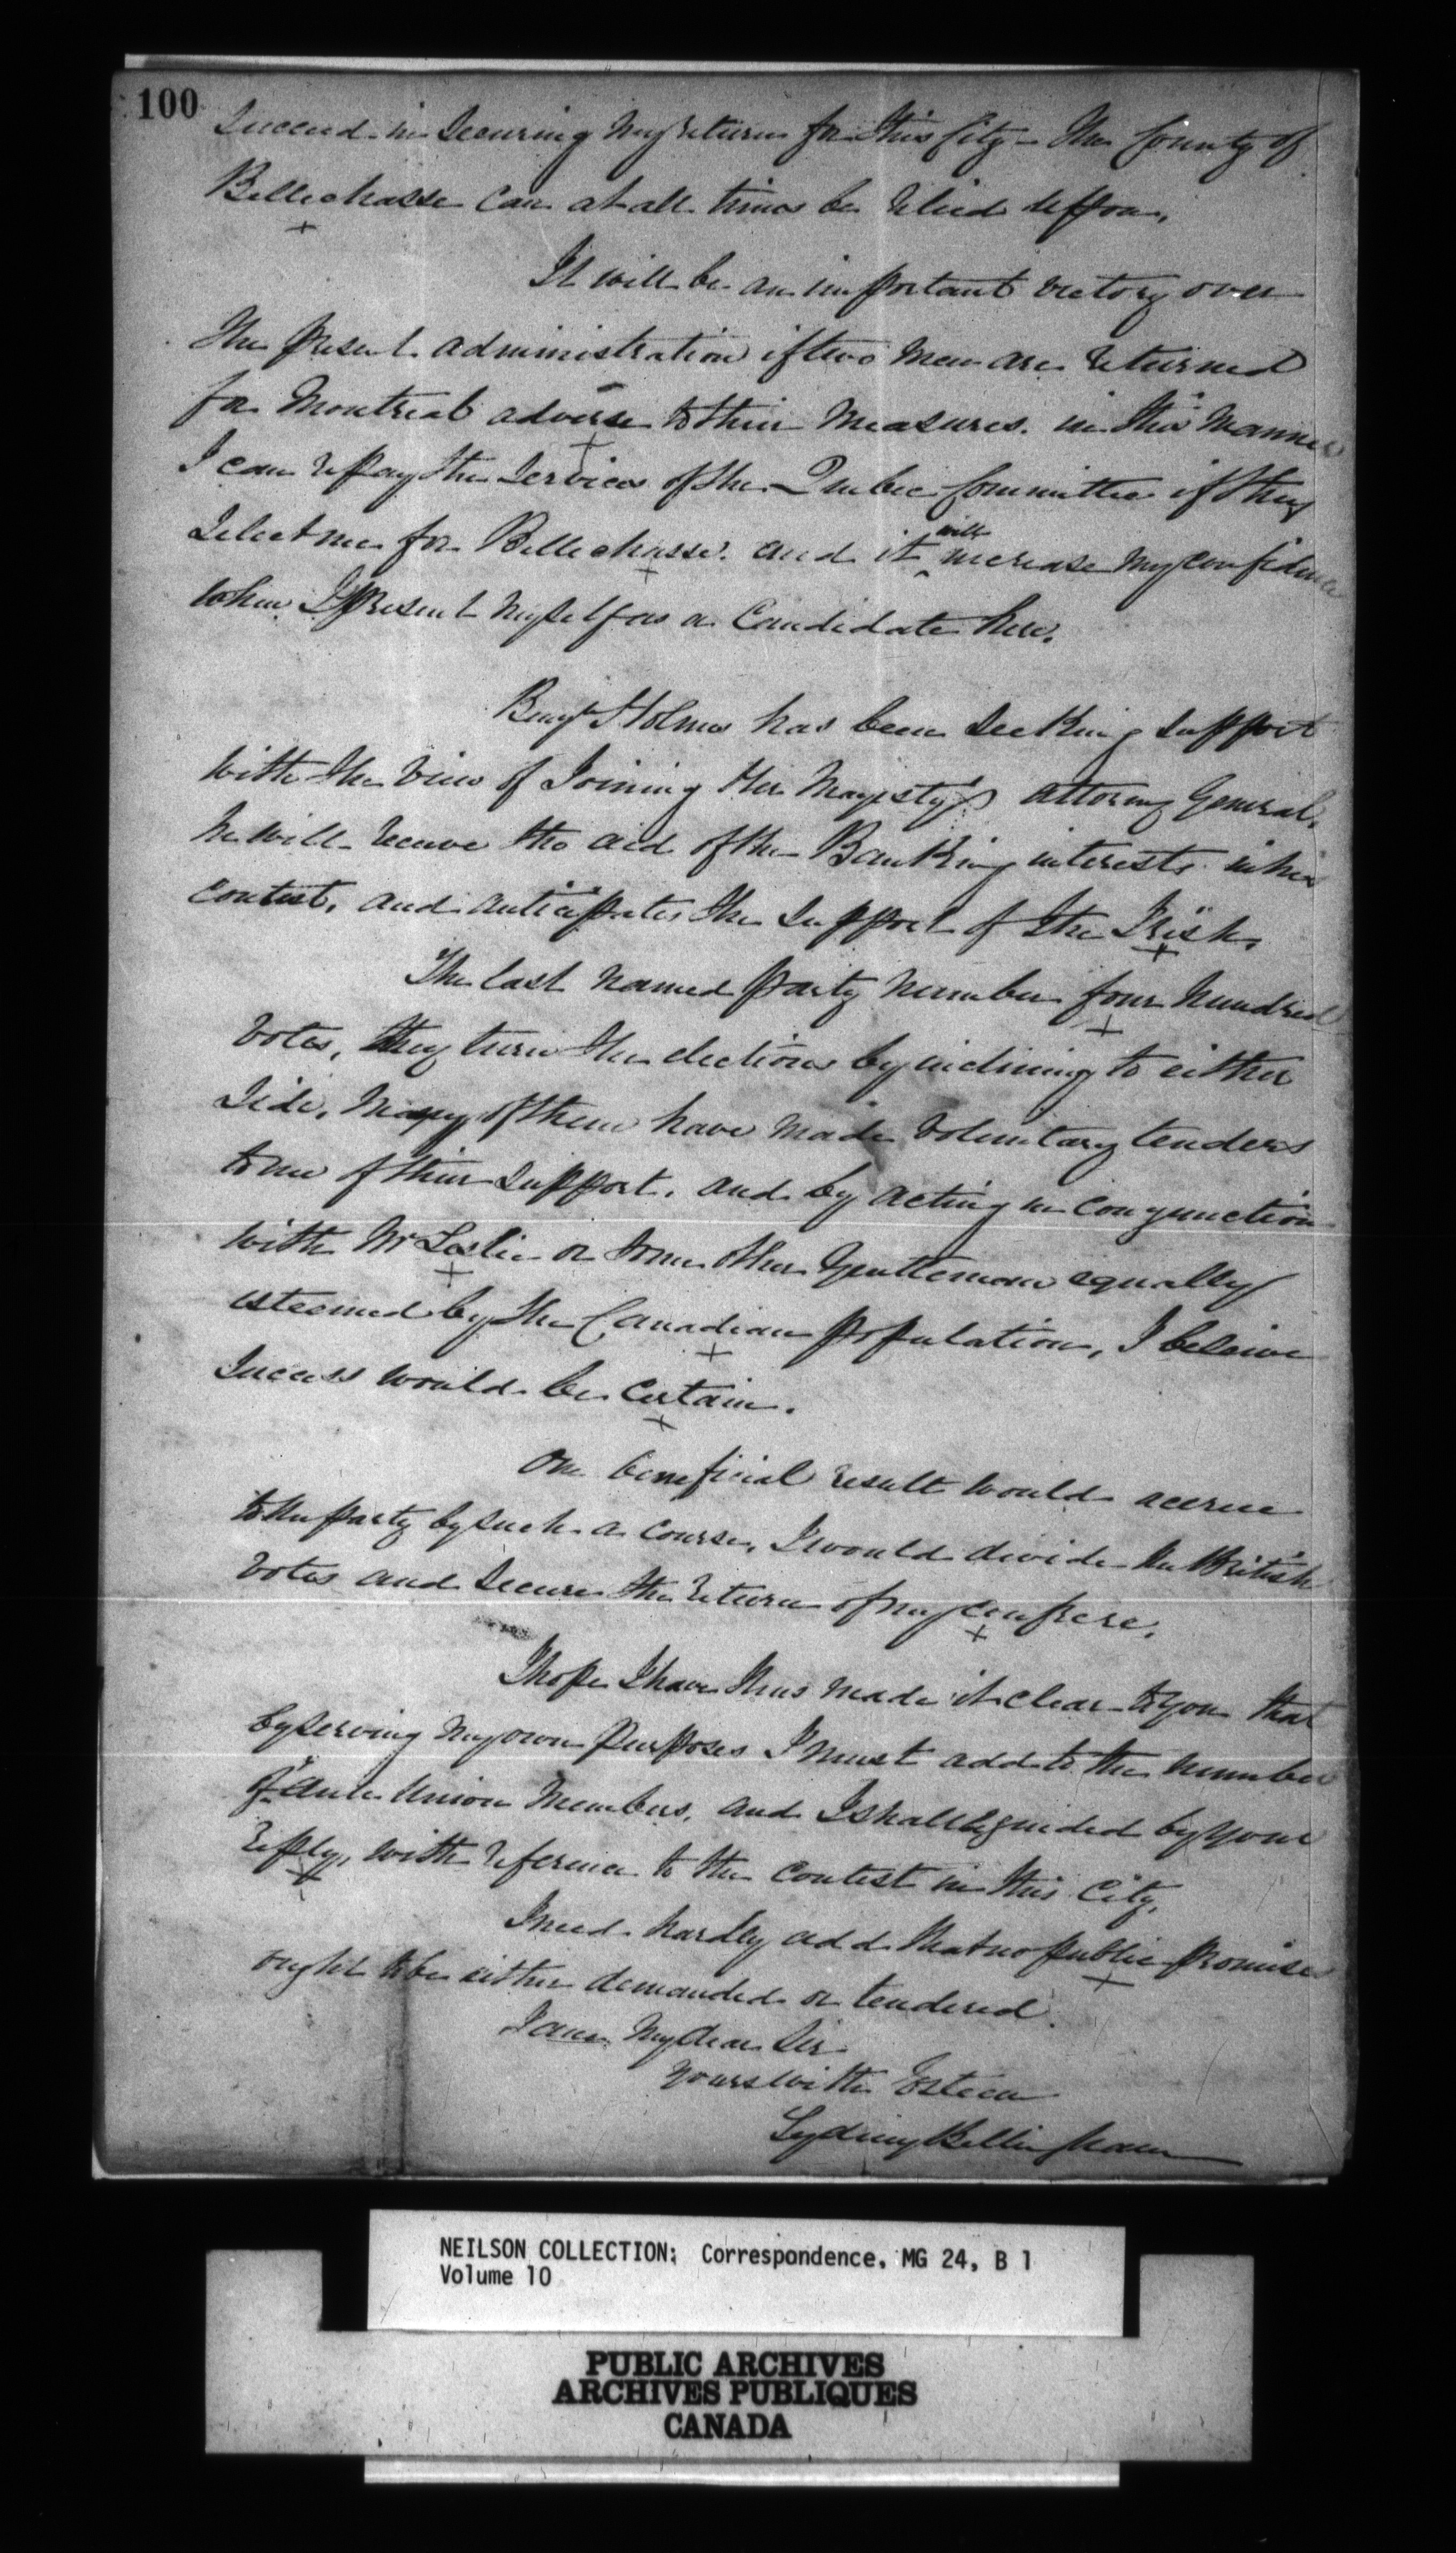 100
succeed in securing my return for this City – The County of
Bellechasse can at all times be relied uppon,
It will be an important victory over
The present administration if two men are returned
for Montreal adverse to their measures. in this manner
I can repay the services of the Quebec Committee if they
select me for Bellechasse. and it will increase my confidence
when I present myself as a Candidate here.
Benjn Holmes has been seeking support
with the view of Joining Her Majesty's attorny General.
he will receive the aid of the Banking interests in his
contest, and anticipates the support of the Irish.
The last named party number four hundred
votes, they turn the elections by inclining to either
side, Many of them have made voluntary tenders
to me of their support. and by acting in conjunction
with Mr Leslie or some other Gentleman equally
esteemed by the Canadian population, I beleive
success would be certain.
One beneficial result would accrue
to the party by such a course, I would divide the British
votes and secure the return of my confrere.
I hope I have thus made it clear to you that
by serving my own purposes I must add to the number
of Anti Union Members, and I shall be guided by your
reply, with reference to the contest in this City.
I need hardly add that no public promises
ought to be either demanded or tendered.
I am My dear Sir
Yours with Esteem
Sydney Bellingham
NEILSON COLLECTION; Correspondence, MG 24, B 1
Volume 10
PUBLIC ARCHIVES
ARCHIVES PUBLIQUES
CANADA